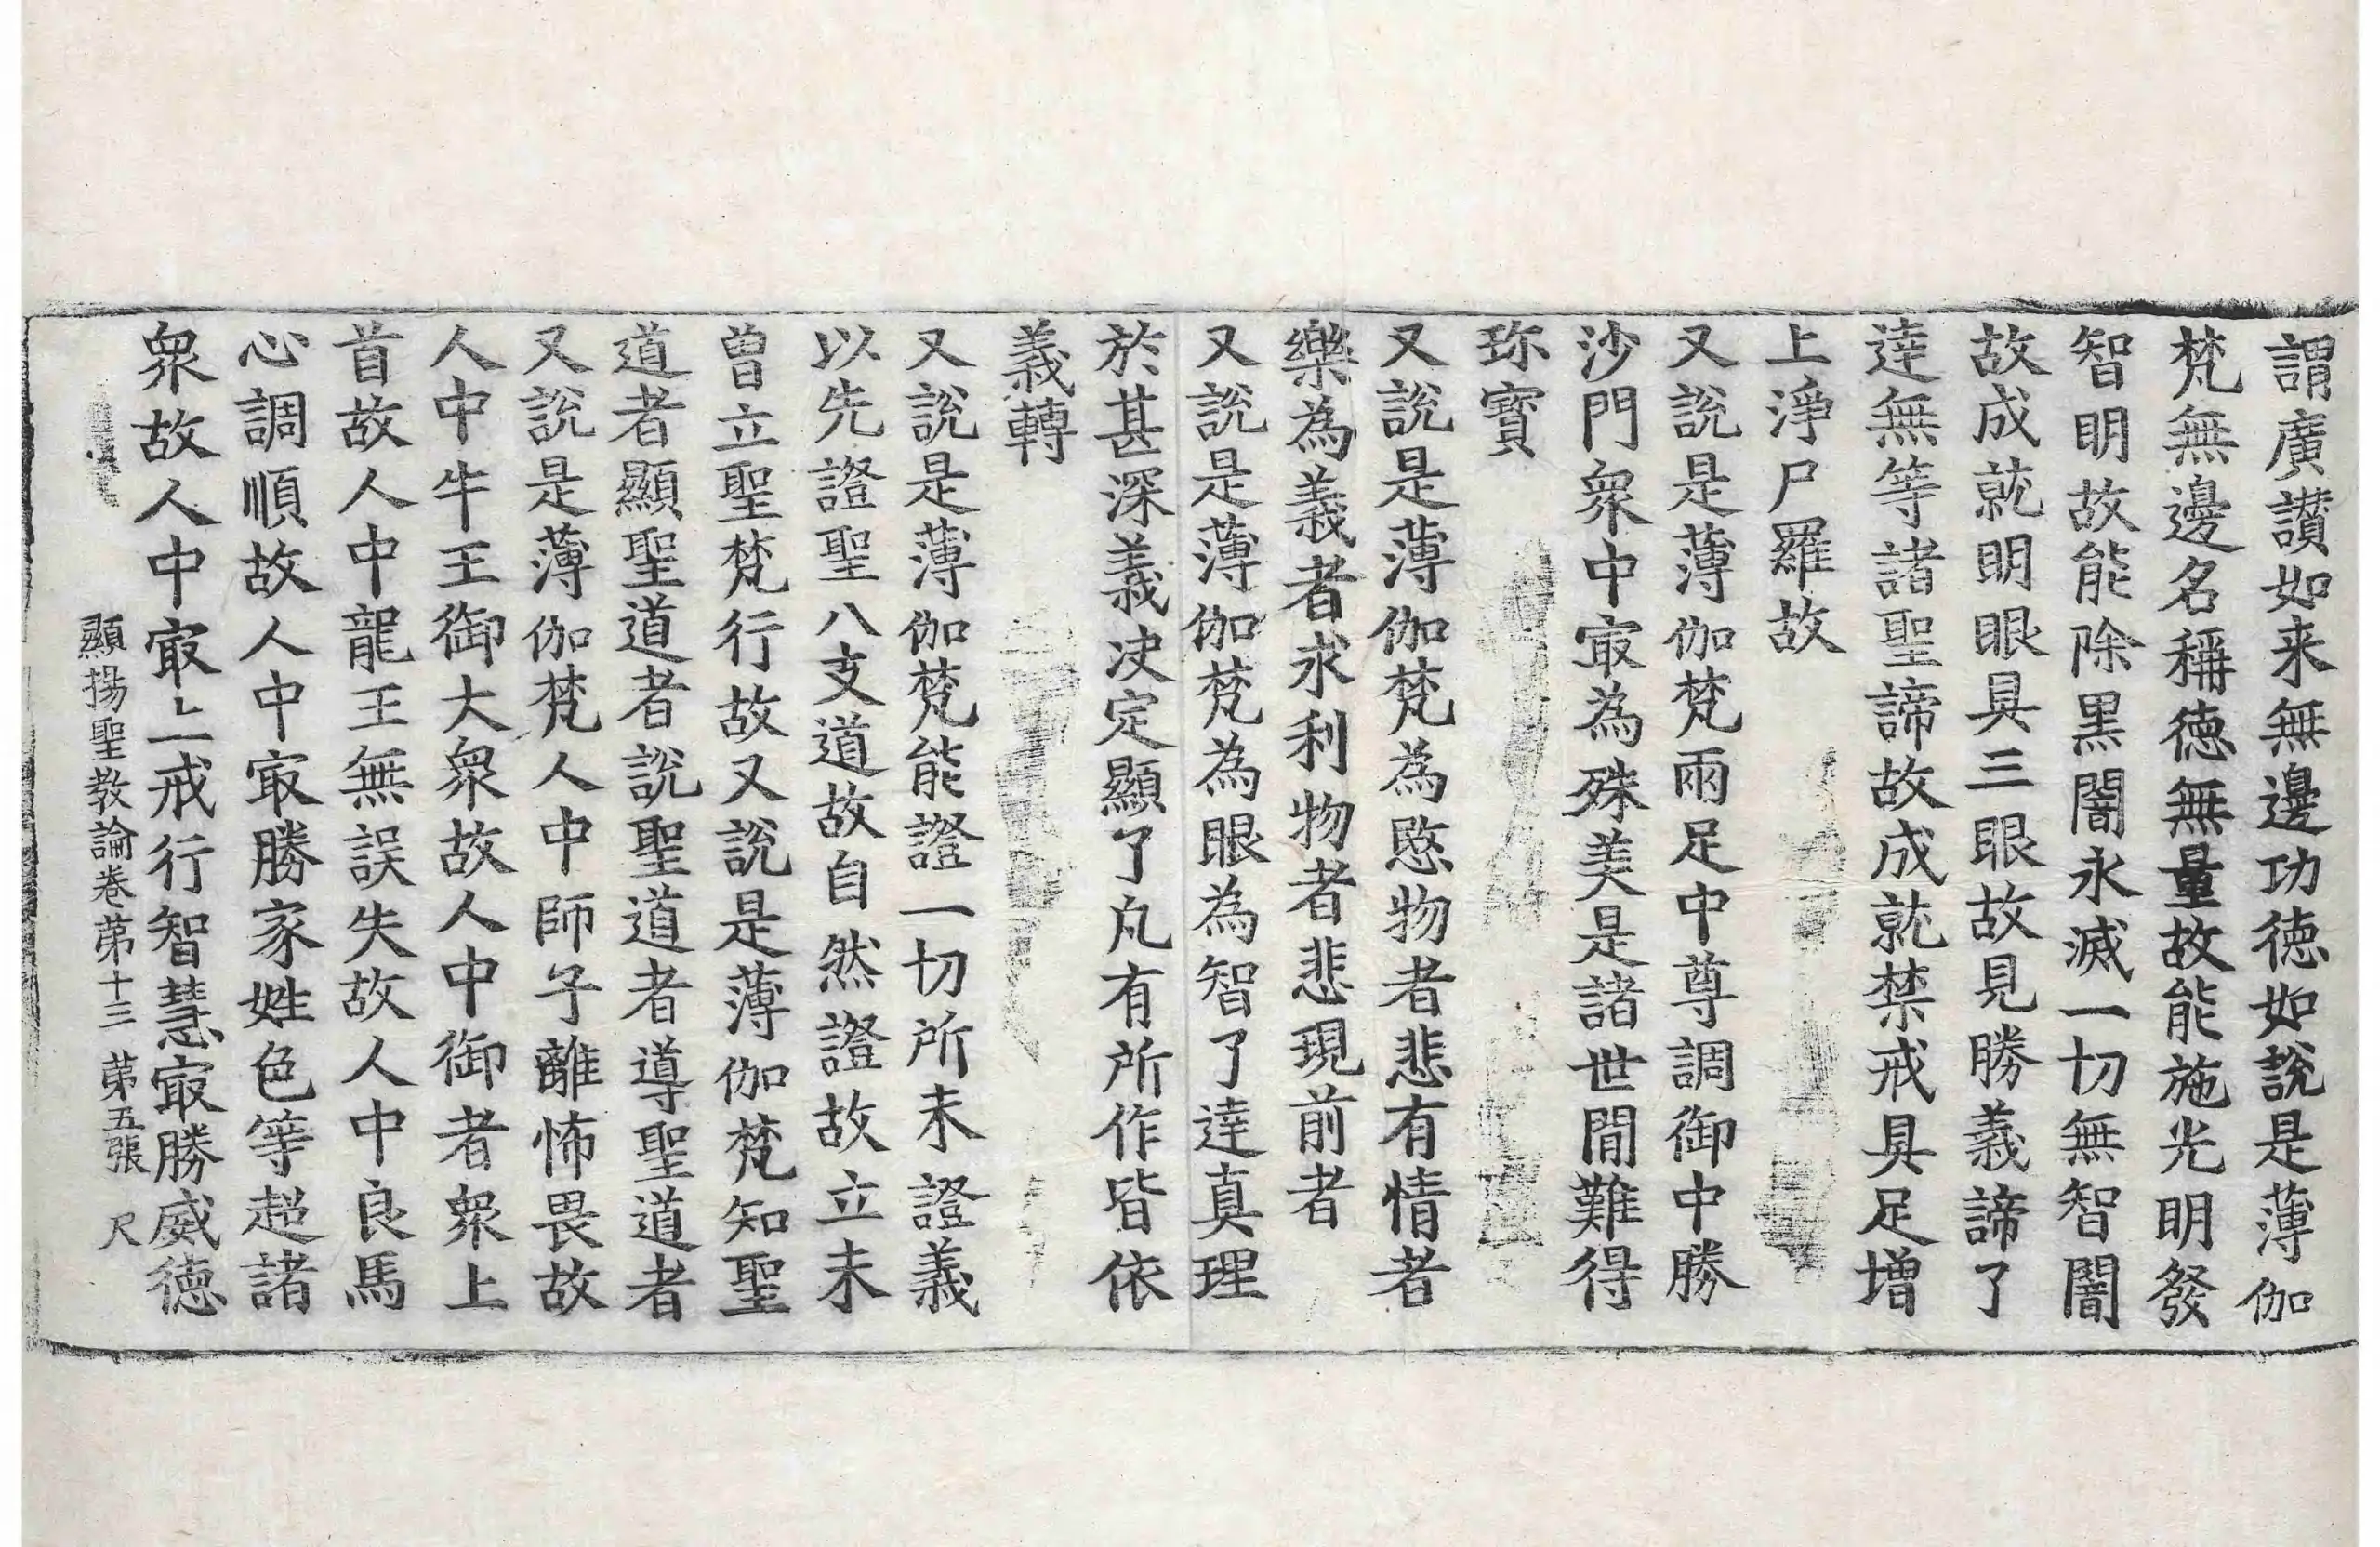 謂廣讃如来無邊功徳如說是薄伽
梵無邊名稱徳無量故能施光明發
智明故能除黒闇永滅一切無智闇
故成就明眼具三眼故見勝義諦了
達無等諸聖諦故成就禁戒具足增
上淨尸羅故
又說是薄伽梵兩足中尊調御中勝
沙門衆中㝡為殊美是諸世間難得
珎寶
又說是薄伽梵為愍物者悲有情者
樂為義者求利物者悲現前者
又說是薄伽梵為眼為智了達真理
於甚深義决定顯了凡有所作皆依
義轉
又說是薄伽梵能證一切所未證義
以先證聖八支道故自然證故立未
曽立聖梵行故又說是薄伽梵知聖
道者顯聖道者說聖道者導聖道者
又說是薄伽梵人中師子離怖畏故
人中牛王御大衆故人中御者衆上
首故人中龍王無誤失故人中良馬
心調順故人中㝡勝家姓色等超諸
衆故人中㝡上戒行智慧㝡勝威徳
顯揚聖教論卷苐十三 苐五張 尺